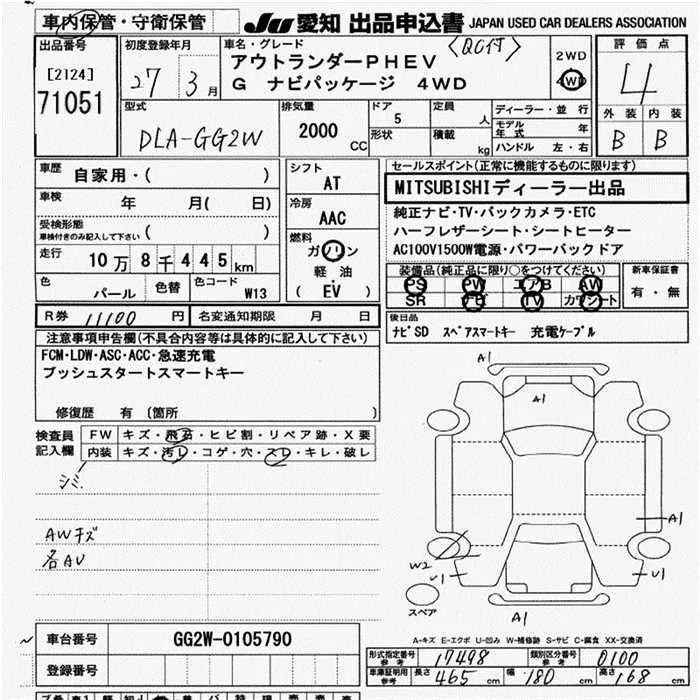 車内保管・守衛保管
JU 愛知 出品申込書 JAPAN USED CAR DEALERS ASSOCIATION
出品番号
[2124]
71051
初度登録年月
27 3月
車名・グレード
〈QC付〉
アウトランダーPHEV
G ナビパッケージ 4WD
2WD
4WD
評価点
4
外装 内装
B B
型式
DLA-GG2W
排気量
2000
CC
ドア
5
形状
定員
人
積載
kg
ディーラー・並行
モデル年式 年
ハンドル 左・右
車歴
自家用・( )
車検
年 月( 日)
受検形態
車検付きのみ記入して下さい
( )
走行
10万8千445km
色
パール
色替
色コード
W13
シフト
AT
冷房
AAC
燃料
ガソリン
軽油
( EV )
セールスポイント(正常に機能するものに限ります)
MITSUBISHIディーラー出品
純正ナビ・TV・バックカメラ・ETC
ハーフレザーシート・シートヒーター
AC100V1500W電源・パワーバックドア
装備品(純正品に限り○をつけてください)
PS PW エアB AW
SR ナビ TV カワシート
新車保証書
有・無
R券 11100 円
名変通知期限 月 日
後日品
ナビSD スペアスマートキー 充電ケーブル
注意事項申告欄(不具合内容等は具体的に記入して下さい)
FCM・LDW・ASC・ACC・急速充電
プッシュスタートスマートキー
修復歴 有 (箇所 )
検査員
記入欄
FW キズ・飛石・ヒビ割・リペア跡・X要
内装 キズ・汚レ・コゲ・穴・スレ・キレ・破レ
シミ
AWキズ
各AU
A1
A1
A1
W2
U1
U1
スペア
A1
A-キズ E-エクボ U-凹み W-補修跡 S-サビ C-腐食 XX-交換済
車台番号
GG2W-0105790
登録番号
形式指定番号
参考
17498
類別区分番号
参考
0100
車庫証明用
参考
長さ 465 cm
幅 180 cm
高さ 168 cm